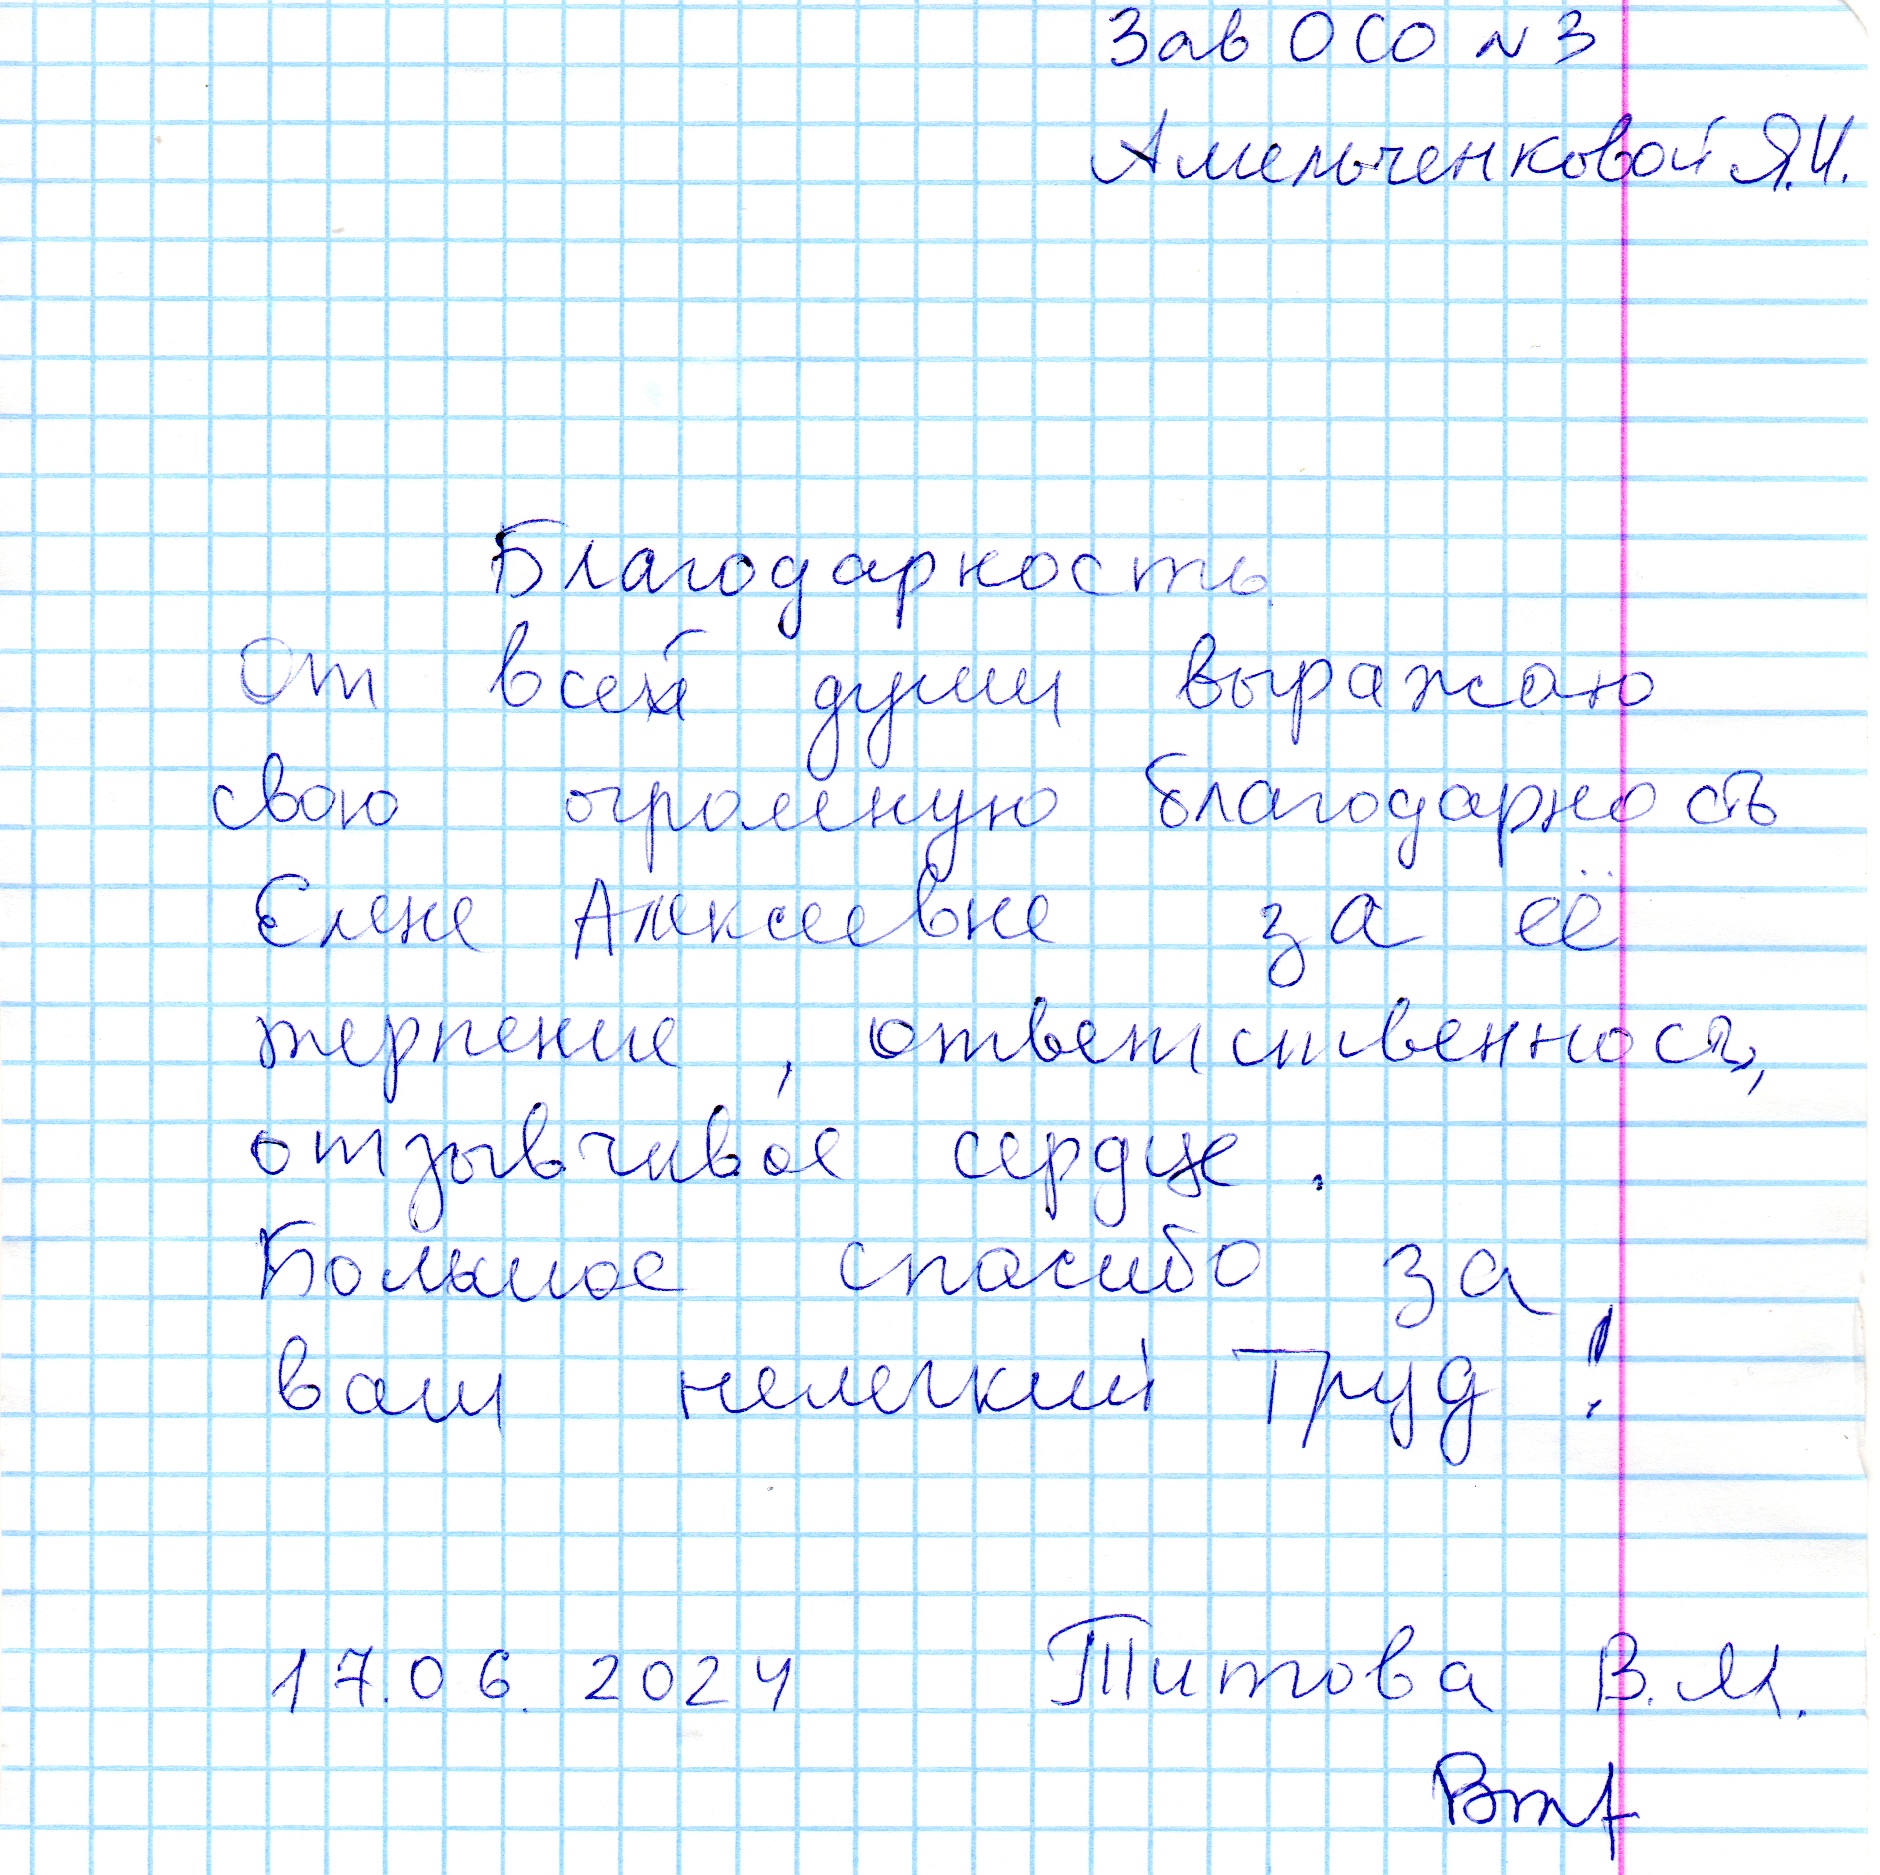 Зав ОСО №3
Амельченковой Я.И.
Благодарность.
От всей души выражаю
свою огромную благодарность
Елене Алексеевне за её
терпение, ответственность,
отзывчивое сердце.
Большое спасибо за
ваш нелегкий Труд!
17.06.2024 Титова В.М.